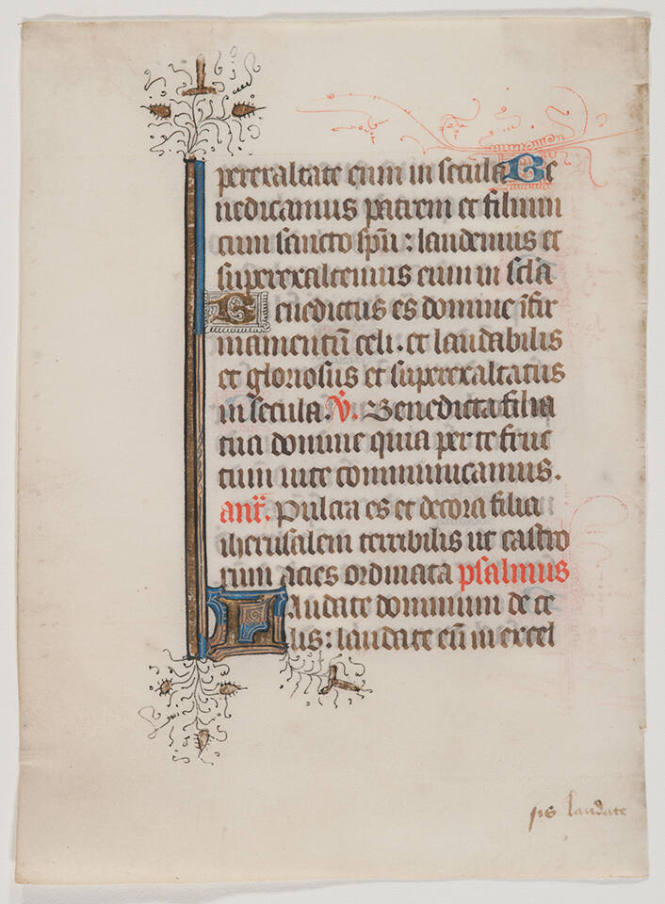 perexaltate eum in secula Be
nedicamus patrem et filium
cum sancto spũ: laudemus et
superexaltemus eum in scła
Benedictus es domine ĩfir
mamentũ celi. et laudabilis
et gloriosus et superexaltatus
in secula. V̇. Benedicta filia
tua domine quia per te fruc
tum vite communicamus.
anť. Pulcra es et decora filia
iherusalem terribilis ut castro
rum acies ordinata psalmus
Laudate dominum de ce
lis: laudate eũ in excel
ps laudate